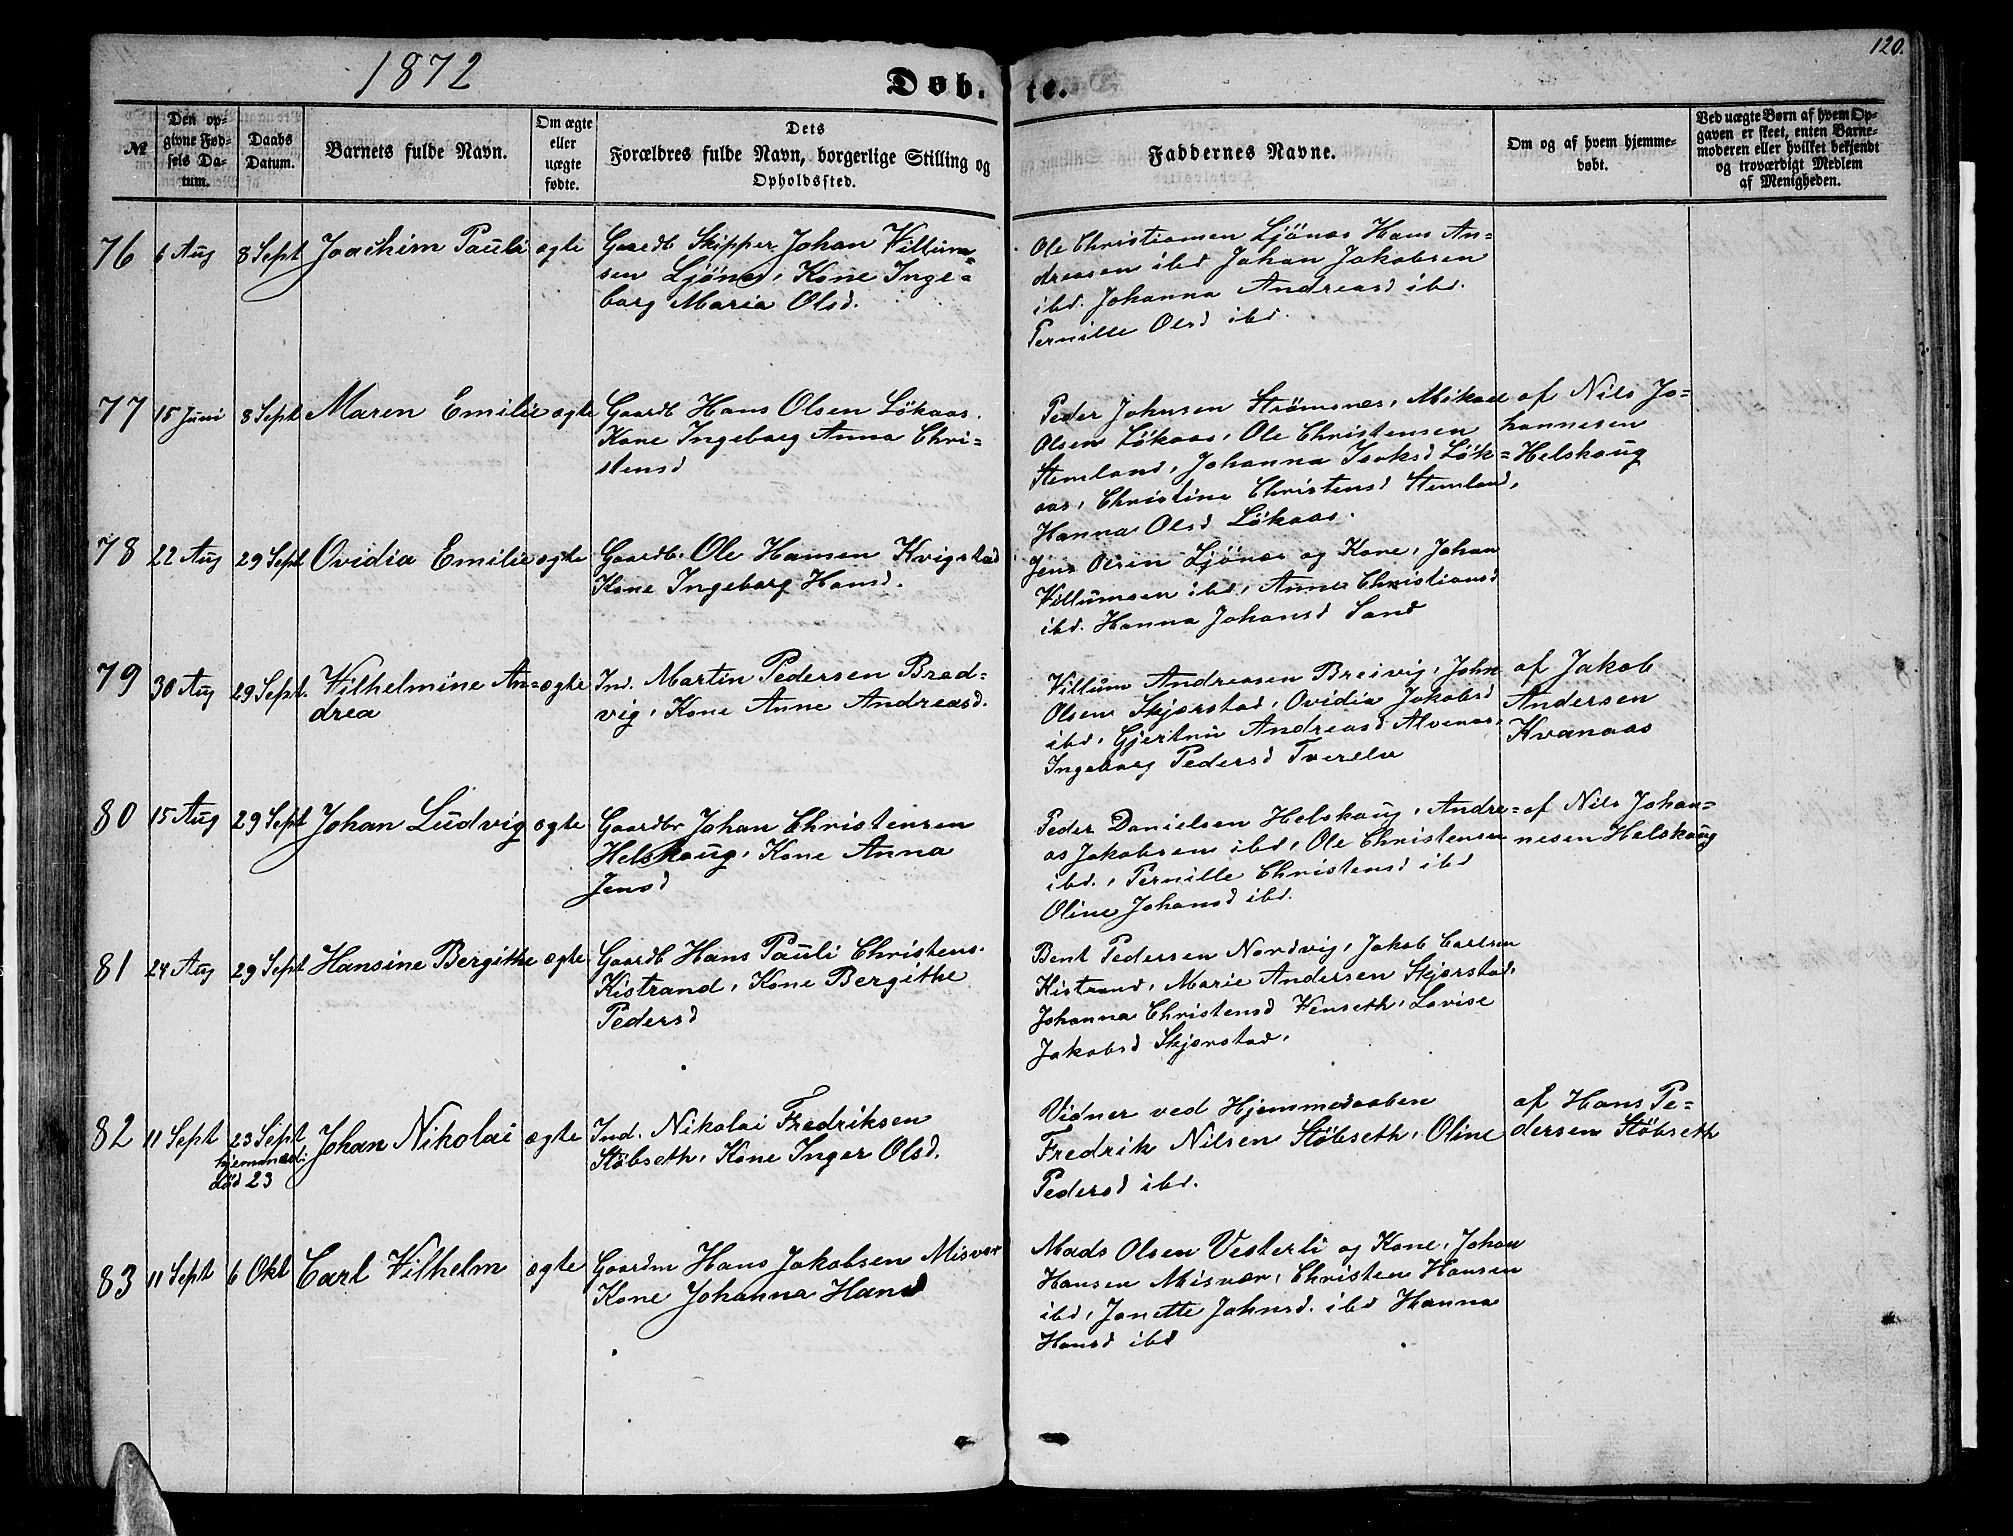 1872
Døb-
te.
120.
№
Den op-
givne Fød-
sels Da-
tum.
Daabs
Datum.
Barnets fulde Navn.
Om ægte
eller
uægte
fødte.
Dets
Forældres fulde Navn, borgerlige Stilling og
Opholdssted.
Faddernes Navne.
Om og af hvem hjemme-
døbt.
Ved uægte Børn af hvem Op-
gaven er skeet, enten Barne-
moderen eller hvilket bekjendt
og troværdigt Medlem
af Menigheden.
76 6 Aug 8 Sept Joachim Pauli ægte
Gaardb Skipper Johan Villum-
sen Ljönes, Kone Inge-
borg Maria Olsd.
Ole Christiansen Ljönes Hans An-
dreasen ibd Johan Jakobsen
ibd. Johanna Andreasd ibd.
Pernille Olsd ibd.
77 15 Juni 8 Sept Maren Emilie ægte
Gaardb Hans Olsen Lökaas.
Kone Ingeborg Anna Chri-
stensd
Peder Johnsen Strømsnes, Mikael
Olsen Lökaas, Ole Christensen
Stemland, Johanna Isaksd Lök-
aas, Christine Christensd Stemland,
Hanna Olsd Lökaas.
af Nils Jo-
hannesen
Helskaug
78 22 Aug 29 Sept Ovidia Emilie ægte
Gaardb. Ole Hansen Kvigstad
Kone Ingeborg Hansd.
Jens Olsen Ljönes og Kone, Johan
Villumsen ibd, Anne Christiansd
ibd. Hanna Johansd Sand
79 30 Aug 29 Sept. Vilhelmine An- ægte
drea
Ind. Martin Pedersen Bred-
vig, Kone Anne Andreasd.
Villum Andreasen Breivig, John
Olsen Skjerstad, Ovidia Jakobsd
ibd, Gjertru Andreasd Alvenes,
Ingeborg Pedersd Tverelv
af Jakob
Andersen
Kvanaas
80 15 Aug 29 Sept Johan Ludvig ægte
Gaardbr Johan Christensen
Helskaug, Kone Anna
Jensd
Peder Danielsen Helskaug, Andre-
as Jakobsen ibd, Ole Christensen
ibd., Pernille Christensd ibd
Oline Johansd ibd.
af Nils Johan-
nesen Helskaug
81 24 Aug 29 Sept Hansine Bergithe ægte
Gaardb Hans Pauli Christens.
Kistrand, Kone Bergithe
Pedersd
Bent Pedersen Nordvig, Jakob Carlsen
Kistrand, Marie Andersen Skjerstad,
Johanna Christensd Venseth, Lovise
Jakobsd Skjerstad.
82 11 Sept 23 Sept Johan Nikolai ægte
hjemmed:
död 23
Ind. Nikolai Fredriksen
Stöbseth, Kone Inger Olsd.
Vidner ved Hjemmedaaben
Fredrik Nilsen Stöbseth, Oline
Pedersd ibd.
af Hans Pe-
dersen Stöbseth
83 11 Sept 6 Okt Carl Vilhelm ægte
Gaardm Hans Jakobsen Misvær
Kone Johanna Hansd
Mads Olsen Vesterli og Kone, Johan
Hansen Misvær, Christen Hansen
ibd, Janette Johnsd. ibd Hanna
Hansd ibd